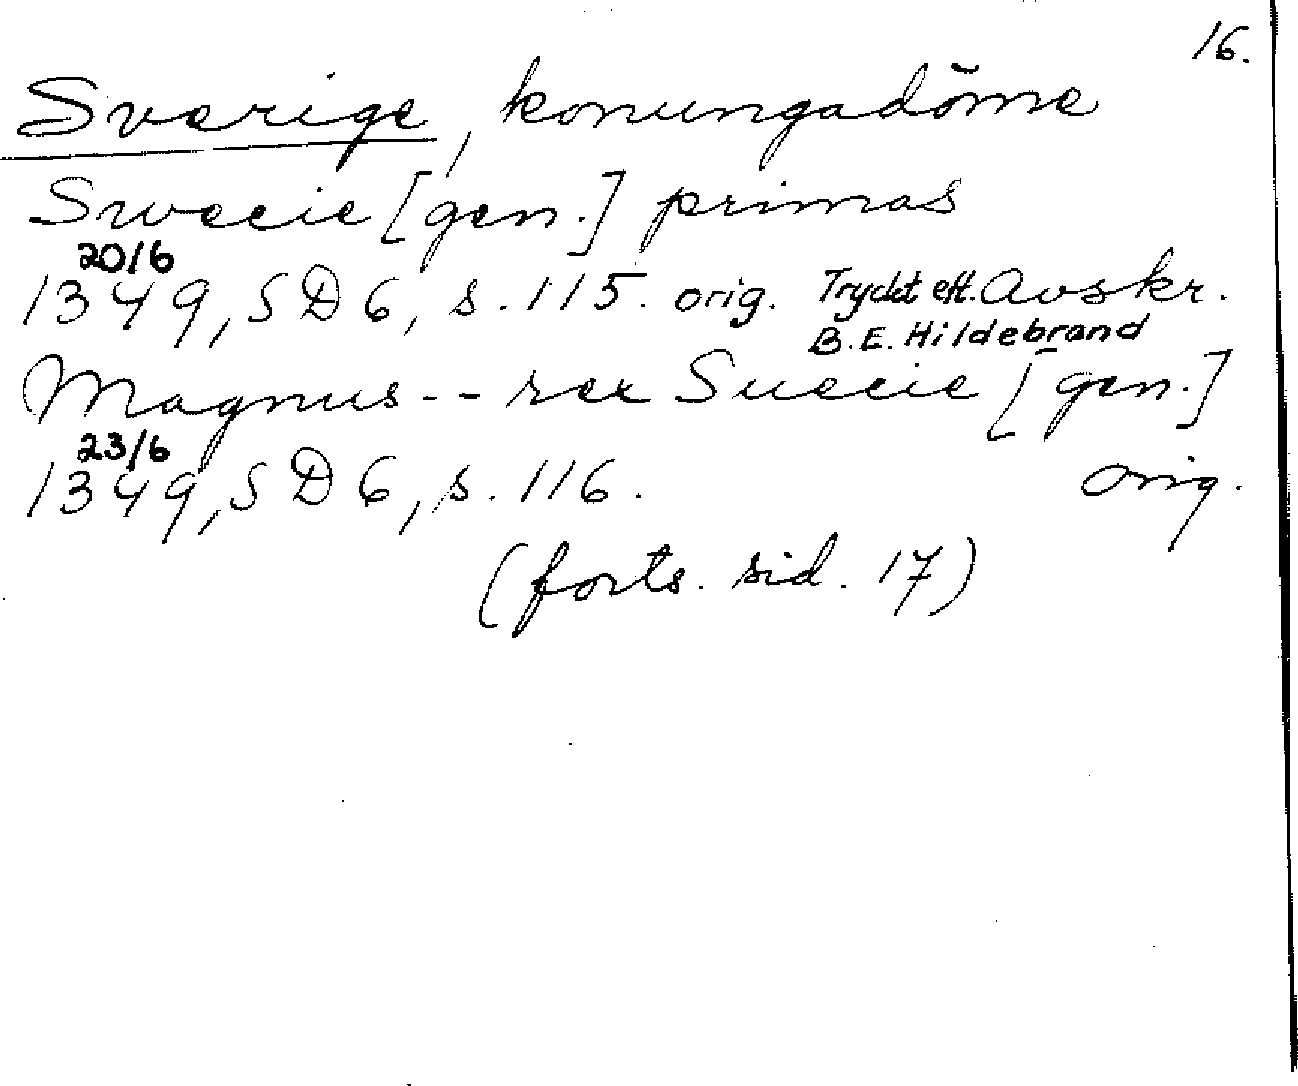 16.
Sverige, konungadöme
Swecie [gen.] primas
20/6
1349, SD 6, s. 115. orig. Tryckt eft. Avskr.
B.E. Hildebrand
Magnus -- rex Suecie [gen.]
23/6
1349, SD 6, s. 116. orig.
(forts. sid. 17)